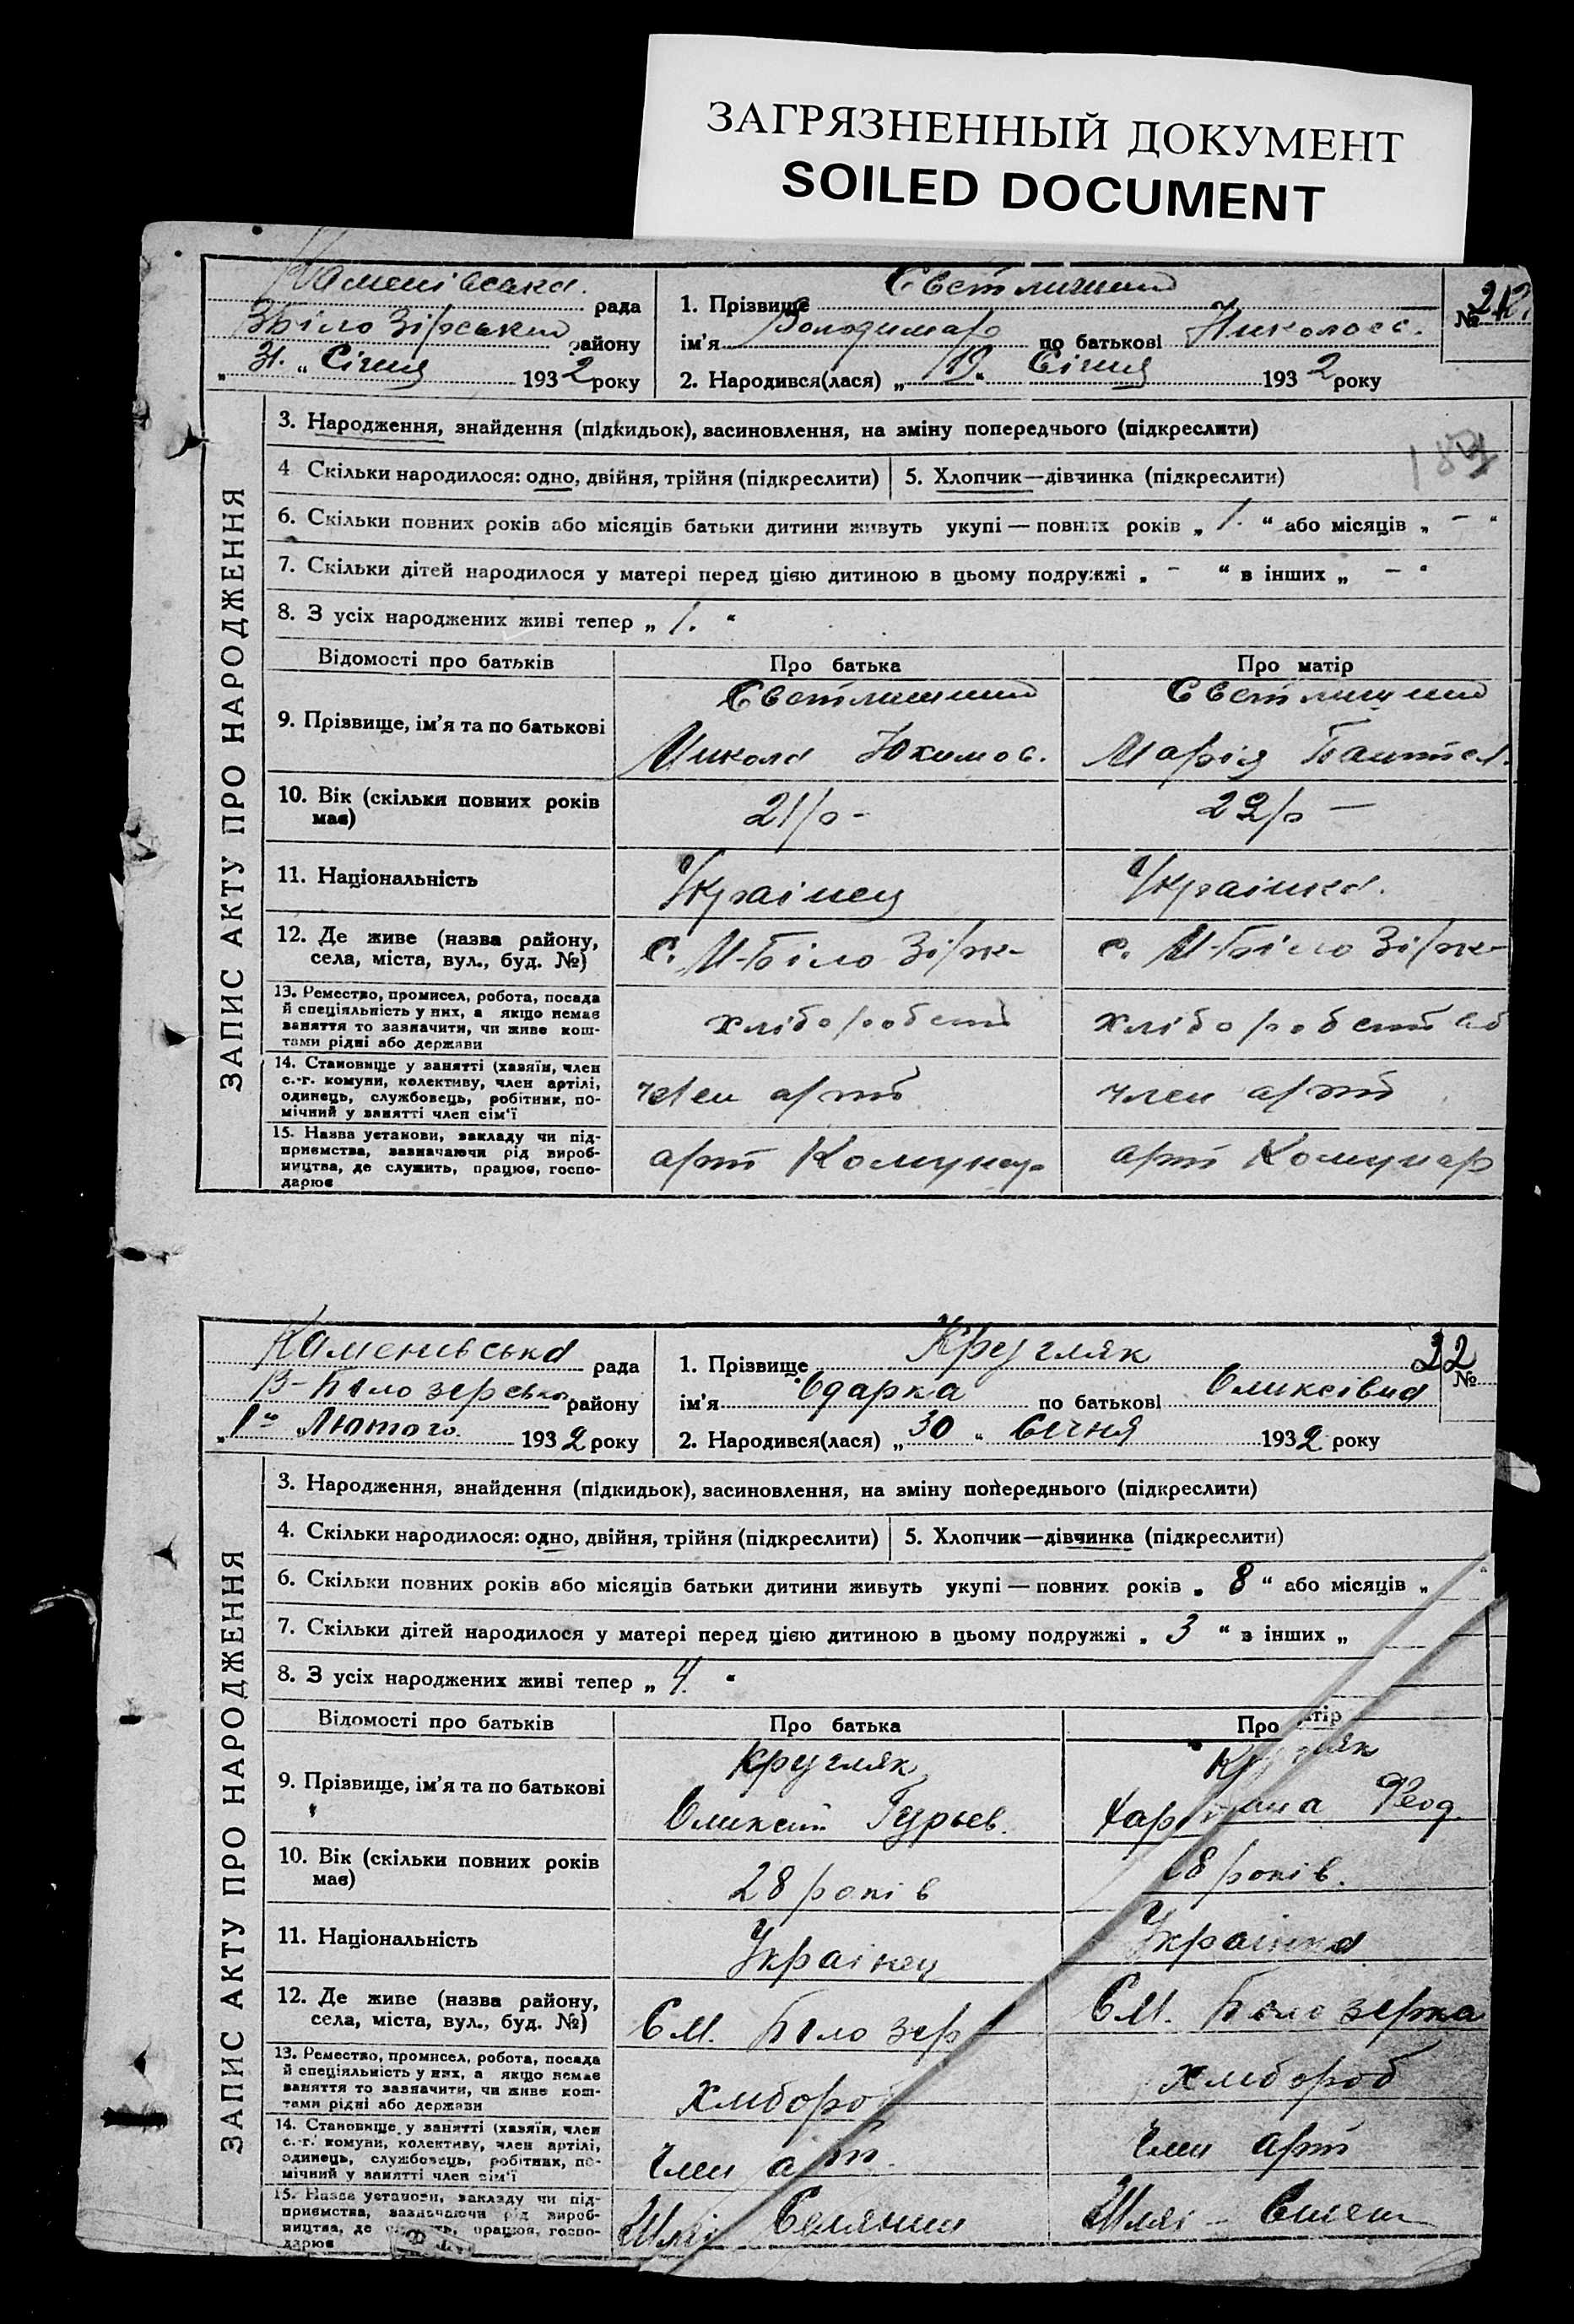 ЗАГРЯЗНЕННЫЙ ДОКУМЕНТ
SOILED DOCUMENT
Каменівська рада
району
"31." Січня 1932 року
1. Прізвище
№
ім'я Володимир по батькові Николаєв.
2. Народився(лася) "19" Січня 1932 року
ЗАПИС АКТУ ПРО НАРОДЖЕННЯ
3. Народження, знайдення (підкидьок), засиновлення, на зміну попереднього (підкреслити)
4 Скільки народилося: одно, двійня, трійня (підкреслити)
5. Хлопчик—дівчинка (підкреслити)
6. Скільки повних років або місяців батьки дитини живуть укупі — повних років „ 1. “ або місяців „ - “
7. Скільки дітей народилося у матері перед цією дитиною в цьому подружжі „ - “ в інших „ - “
8. З усіх народжених живі тепер „ 1. “
Відомості про батьків
Про батька
Про матір
9. Прізвище, ім'я та по батькові
Микола Юхимов.
Марія Пантел.
10. Вік (скільки повних років має)
21/р -
22/р —
11. Національність
Украінец
Украінка.
12. Де живе (назва району, села, міста, вул., буд. №)
с. М-Біло Зірк-
с. М-Біло Зірк-
13. Ремество, промисел, робота, посада й спеціяльність у них, а якщо немає заняття то зазначити, чи живе коштами рідні або держави
14. Становище у занятті (хазяїн, член с.-г. комуни, колективу, член артілі, одинець, службовець, робітник, помічний у занятті член сім'ї
член арт
член арт
15. Назва установи, закладу чи підприємства, зазначаючи рід виробництва, де служить, працює, господарює
арт Комунар
арт Комунар
Каменівська рада
В-Білозерськ району
"1го" Лютого 1932 року
1. Прізвище Кругляк
22
№
ім'я Одарка по батькові Оликсівна
2. Народився(лася) „30“ Січня 1932 року
ЗАПИС АКТУ ПРО НАРОДЖЕННЯ
3. Народження, знайдення (підкидьок), засиновлення, на зміну попереднього (підкреслити)
4. Скільки народилося: одно, двійня, трійня (підкреслити)
5. Хлопчик—дівчинка (підкреслити)
6. Скільки повних років або місяців батьки дитини живуть укупі — повних років „ 8 “ або місяців „
7. Скільки дітей народилося у матері перед цією дитиною в цьому подружжі „ 3 “ в інших „
8. З усіх народжених живі тепер „ 4. “
Відомості про батьків
Про батька
Про матір
9. Прізвище, ім'я та по батькові
Кругляк
Оликсій Гурьев.
Феод.
10. Вік (скільки повних років має)
28 років
8 років.
11. Національність
Украінец
Украінка
12. Де живе (назва району, села, міста, вул., буд. №)
С М. Біло зер
С М. Біло зерка
13. Ремество, промисел, робота, посада й спеціяльність у них, а якщо немає заняття то зазначити, чи живе коштами рідні або держави
хлібороб
хлібороб
14. Становище у занятті (хазяїн, член с.-г. комуни, колективу, член артілі, одинець, службовець, робітник, помічний у занятті член сім'ї
Член арт.
Член арт
15. Назва установи, закладу чи підприємства, зазначаючи рід виробництва, де служить, працює, господарює
Шлях Селянин
Шлях -